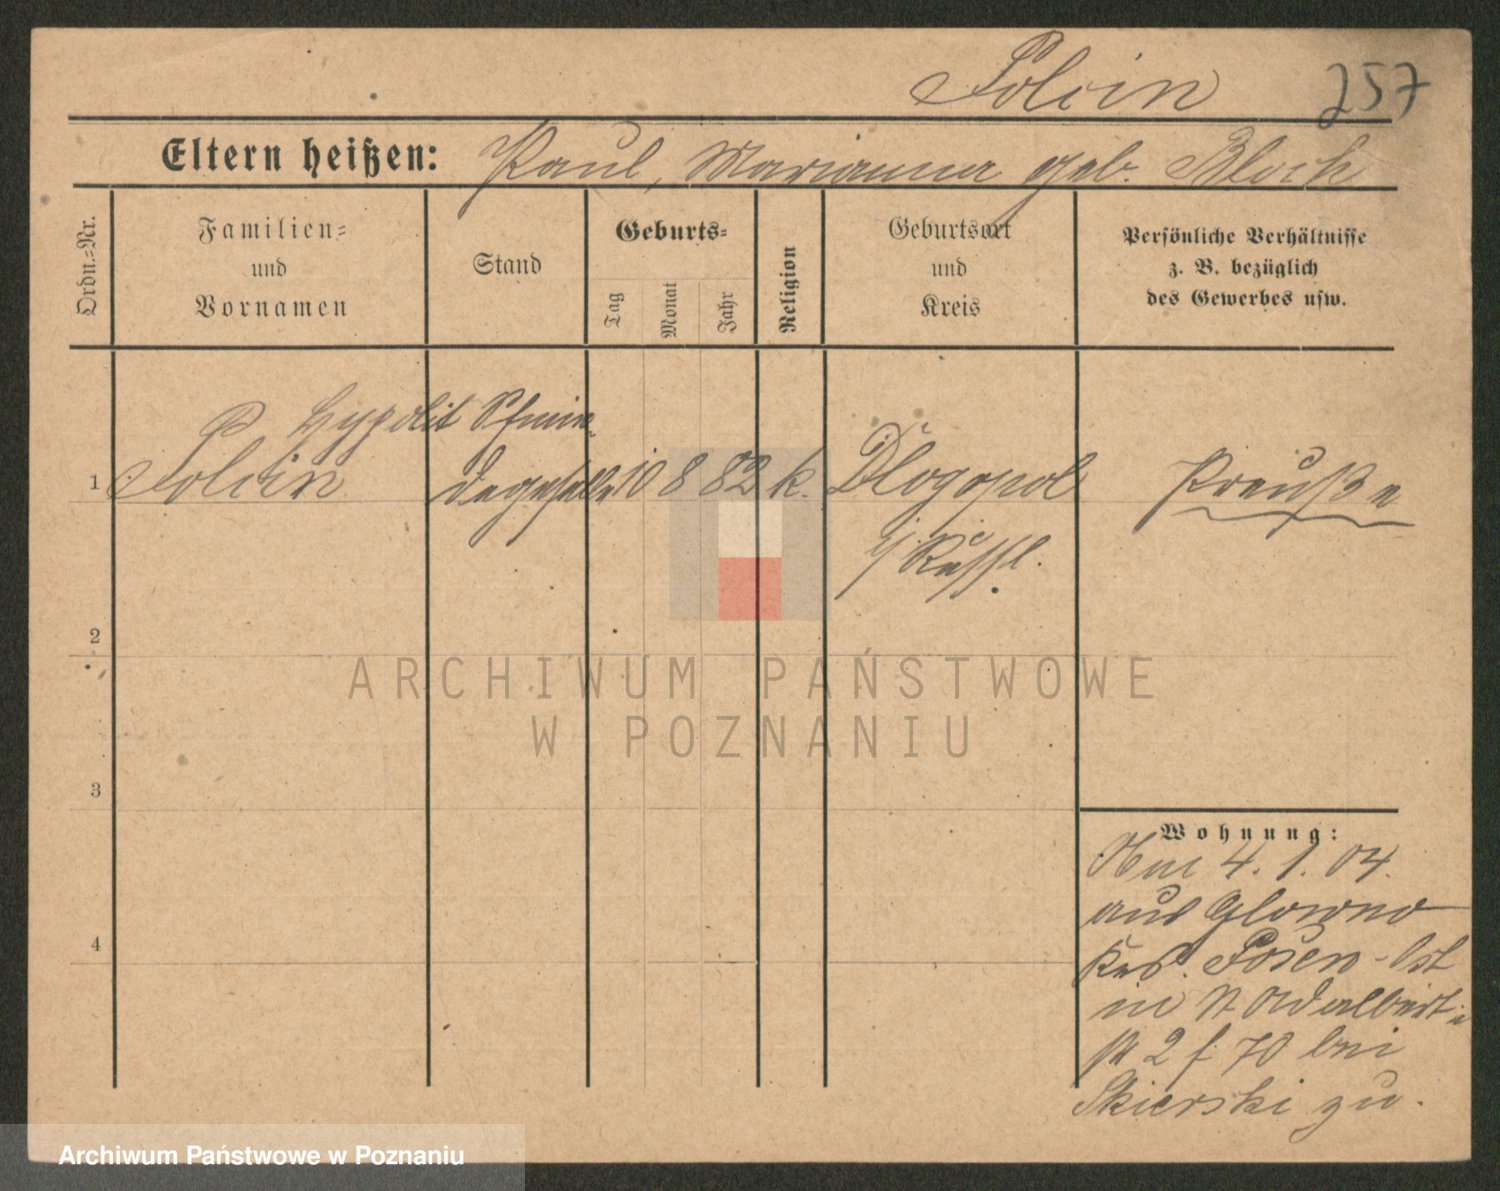 Polcin 257
Eltern heißen: Paul, Marianna geb. Bloch
Ordn.-Nr.
Familien-
und
Vornamen
Stand
Geburts-
Tag
Monat
Jahr
Religion
Geburtsort
und
Kreis
Persönliche Verhältnisse
z. B. bezüglich
des Gewerbes usw.
Hypolit Schmie-
1 Polcin degeselle 10 8 82 k. Dlogopol Preuße
i/ Russl.
2
ARCHIWUM PAŃSTWOWE
W POZNANIU
3
Wohnung:
Am 4. 1. 04.
aus Glowno
Krs. Posen-Ost
in Adalbert-
str 2 f. 70 bei
Skierski zu.
4
Archiwum Państwowe w Poznaniu